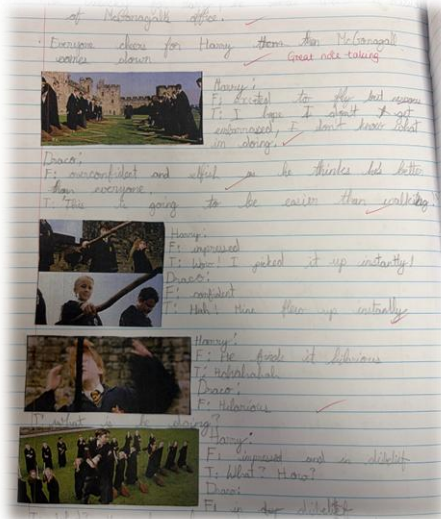 of McGonagall's office.
Everyone cheers for Harry then McGonagall
comes down.
Great note taking
Harry:
F: excited to fly but
T: I hope I don't get
embarrassed, I don't know what
im doing.
Draco:
F: overconfident and selfish as he thinks he's better
than everyone.
T: This is going to be easier than walking.
Harry:
F: impressed
T: Wow! I picked it up instantly!
Draco:
F: confident
T: Hah! Mine flew up instantly
Harry:
F: He finds it hilarious
T: Hahahahah
Draco:
F: Hilarious
T: what is he doing?
Harry:
F: impressed and in
T: What? How?
Draco:
F: in